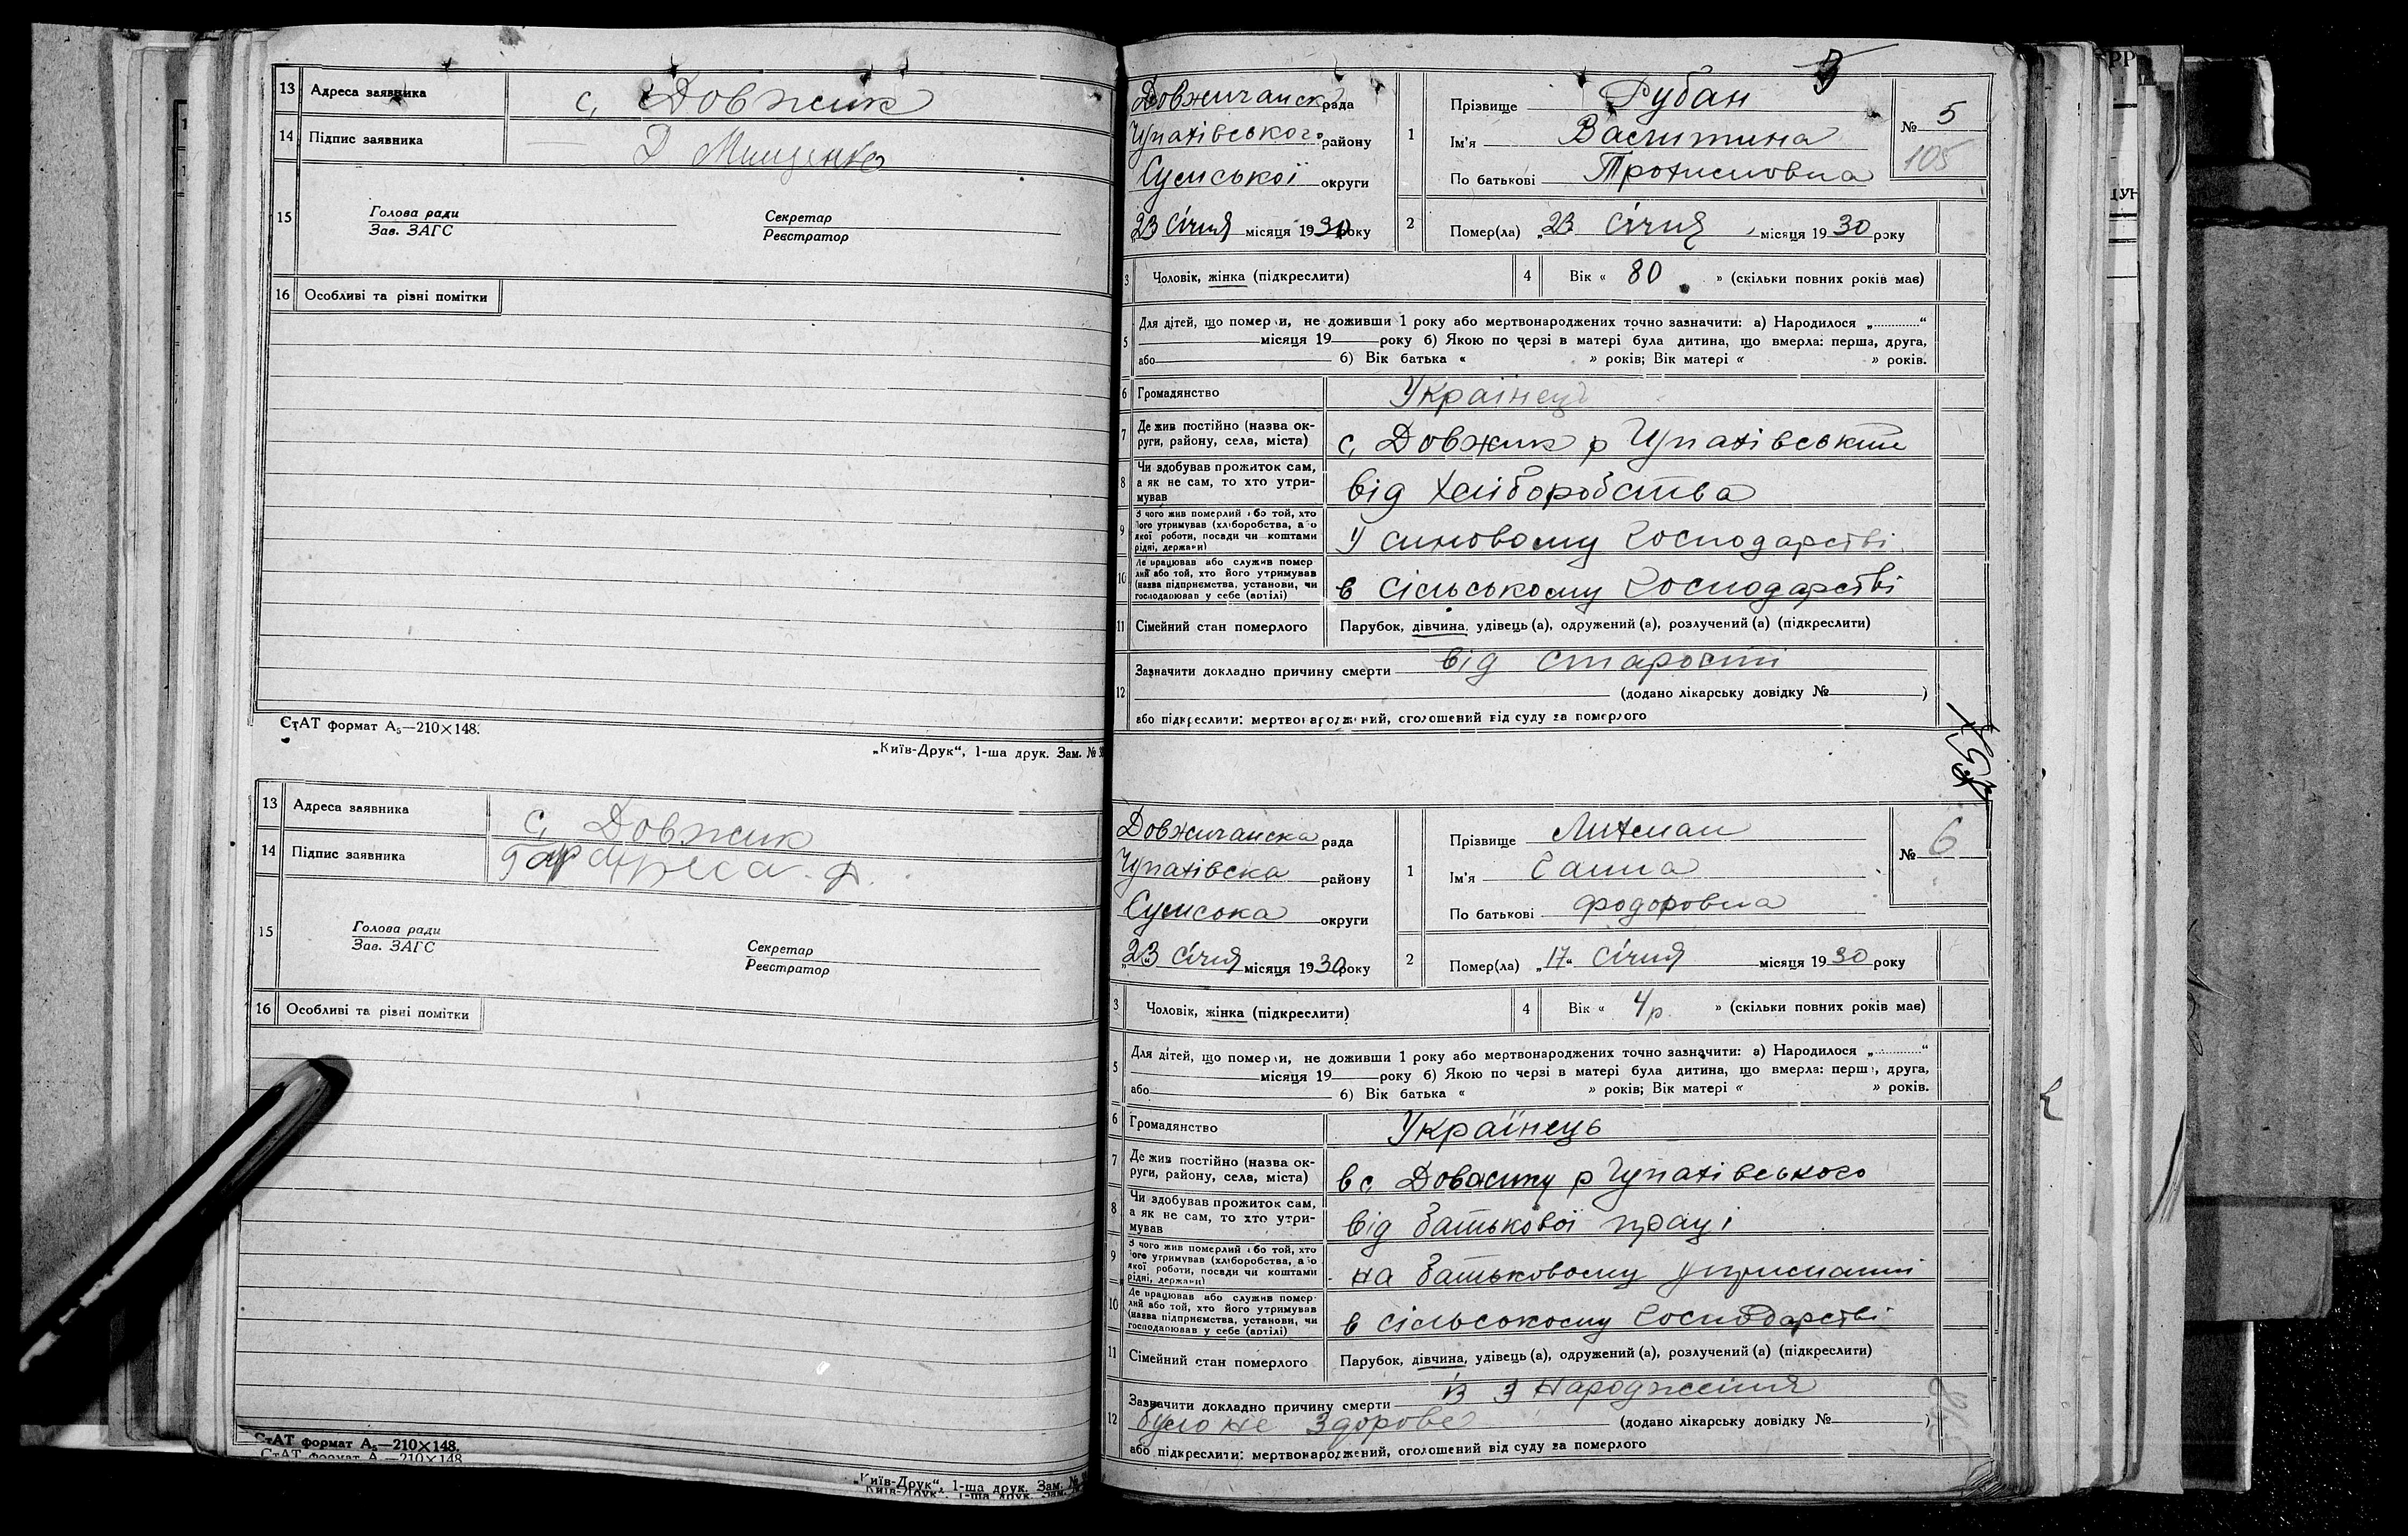 13 Адреса заявника с, Довжик
14 Підпис заявника Д Мищенко
15 Голова ради Секретар
Зав. ЗАГС Реєстратор
16 Особливі та різні помітки
СтАТ формат А₅—210×148.
„Київ-Друк“, 1-ша друк. Зам. №
13 Адреса заявника с, Довжик
14 Підпис заявника
15 Голова ради Секретар
Зав. ЗАГС Реєстратор
16 Особливі та різні помітки
СтАТ формат А₅—210×148.
СтАТ формат А —210×148
„Київ-Друк“, 1-ша друк. Зам. №
Київ-Друк“, 1-ша друк. Зам.
5
Довжичанска рада
Чупахівського району
Сумської округи
„23 січня місяця 1930 року
1 Прізвище Рубан
Ім'я
По батькові
№ 5
105
2 Помер(ла) „23 січня місяця 1930 року
3 Чоловік, жінка (підкреслити) 4 Вік « 80 » (скільки повних років має)
5 Для дітей, що помер и, не доживши 1 року або мертвонароджених точно зазначити: а) Народилося „ “
місяця 19 року б) Якою по черзі в матері була дитина, що вмерла: перша, друга,
або б) Вік батька « » років; Вік матері « » років.
6 Громадянство Українець
7 Де жив постійно (назва округи, району, села, міста) с, Довжик р Чупахівський
8 Чи здобував прожиток сам, а як не сам, то хто утримував від хліборобства
9 З чого жив померлий або той, хто його утримував (хліборобства, або якої роботи, посади чи коштами рідні, держави) У синовому господарстві
10 Де працював або служив померлий або той, хто його утримував (назва підприємства, установи, чи господарював у себе (артілі) в сільському господарстві
11 Сімейний стан померлого Парубок, дівчина, удівець (а), одружений (а), розлучений (а) (підкреслити)
12 Зазначити докладно причину смерти від старости
(додано лікарську довідку № )
або підкреслити: мертвонароджений, оголошений від суду за померлого
Довжичанска рада
Чупахівска району
Сумсока округи
„23 січня місяця 1930 року
1 Прізвище Лихман
Ім'я Ганна
По батькові Фодоровна
№ 6
2 Помер(ла) „17“ січня місяця 1930 року
3 Чоловік, жінка (підкреслити) 4 Вік « 4р. » (скільки повних років має)
5 Для дітей, що помер и, не доживши 1 року або мертвонароджених точно зазначити: а) Народилося „ “
місяця 19 року б) Якою по черзі в матері була дитина, що вмерла: перш , друга,
або б) Вік батька « » років; Вік матері « » років.
6 Громадянство Українець
7 Де жив постійно (назва округи, району, села, міста) в с Довжику р Чупахівського
8 Чи здобував прожиток сам, а як не сам, то хто утримував від батькової праці
9 З чого жив померлий або той, хто його утримував (хліборобства, або якої роботи, посади чи коштами рідні, держави) на батьковому утриманні
10 Де працював або служив померлий або той, хто його утримував (назва підприємства, установи, чи господарював у себе (артілі) в сільсокому господарстві
11 Сімейний стан померлого Парубок, дівчина, удівець (а), одружений (а), розлучений (а) (підкреслити)
12 Зазначити докладно причину смерти з народження
було не здорове (додано лікарську довідку № )
або підкреслити: мертвонароджений, оголошений від суду за померлого